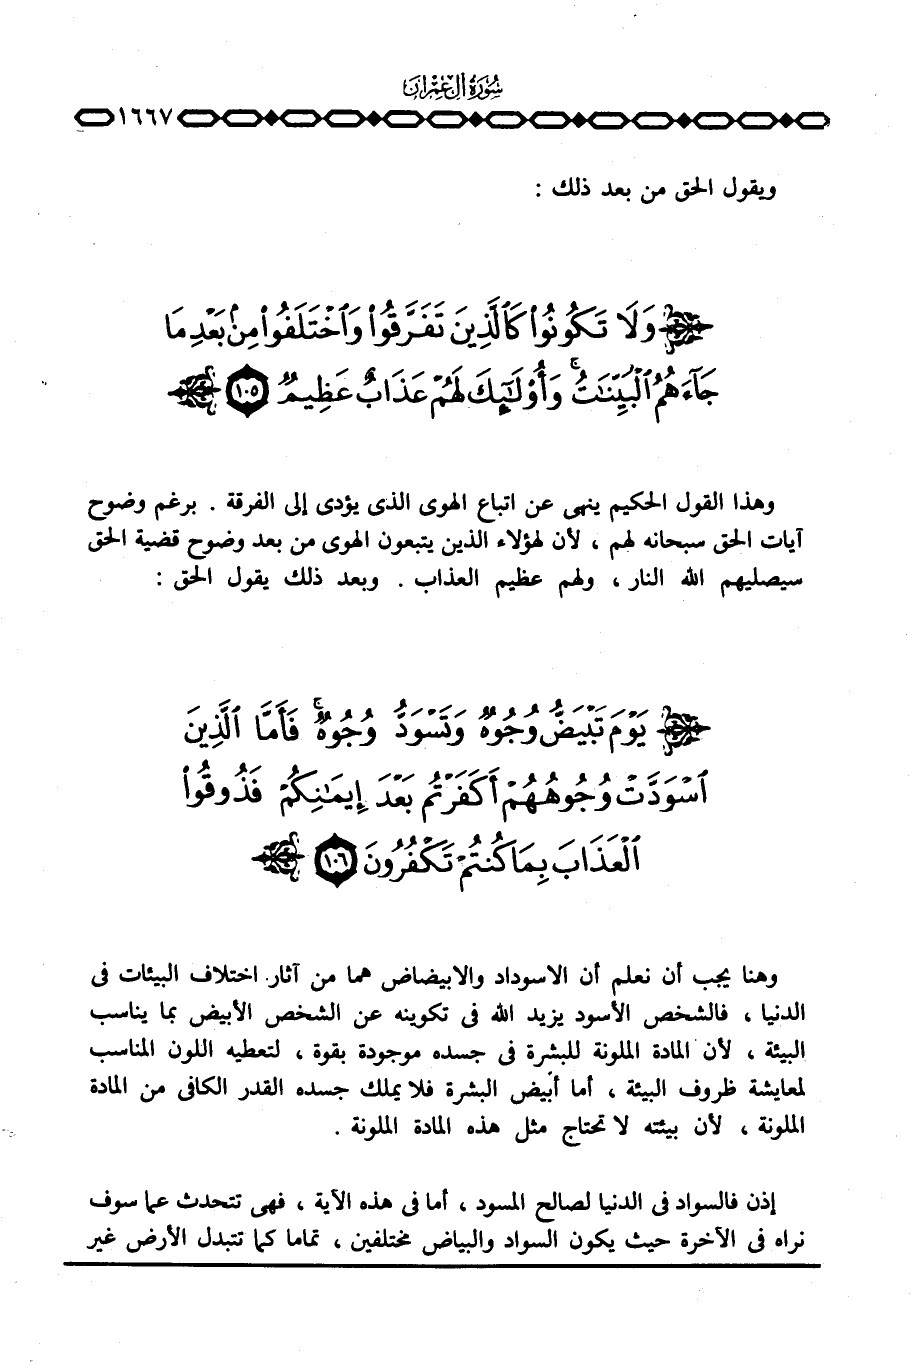 سُورَةُ آلِ عِمْرَانَ
١٦٦٧
ويقول الحق من بعد ذلك :
وَلَا تَكُونُوا۟ كَٱلَّذِينَ تَفَرَّقُوا۟ وَٱخْتَلَفُوا۟ مِنۢ بَعْدِ مَا
جَآءَهُمُ ٱلْبَيِّنَـٰتُ ۚ وَأُو۟لَـٰٓئِكَ لَهُمْ عَذَابٌ عَظِيمٌ ١٠٥
وهذا القول الحكيم ينهى عن اتباع الهوى الذى يؤدى إلى الفرقة . برغم وضوح
آيات الحق سبحانه لهم ، لأن لهؤلاء الذين يتبعون الهوى من بعد وضوح قضية الحق
سيصليهم الله النار ، ولهم عظيم العذاب . وبعد ذلك يقول الحق :
يَوْمَ تَبْيَضُّ وُجُوهٌ وَتَسْوَدُّ وُجُوهٌ ۚ فَأَمَّا ٱلَّذِينَ
ٱسْوَدَّتْ وُجُوهُهُمْ أَكَفَرْتُم بَعْدَ إِيمَـٰنِكُمْ فَذُوقُوا۟
ٱلْعَذَابَ بِمَا كُنتُمْ تَكْفُرُونَ ١٠٦
وهنا يجب أن نعلم أن الاسوداد والابيضاض هما من آثار اختلاف البيئات فى
الدنيا ، فالشخص الأسود يزيد الله فى تكوينه عن الشخص الأبيض بما يناسب
البيئة ، لأن المادة الملونة للبشرة فى جسده موجودة بقوة ، لتعطيه اللون المناسب
لمعايشة ظروف البيئة ، أما أبيض البشرة فلا يملك جسده القدر الكافى من المادة
الملونة ، لأن بيئته لا تحتاج مثل هذه المادة الملونة .
إذن فالسواد فى الدنيا لصالح المسود ، أما فى هذه الآية ، فهى تتحدث عما سوف
نراه فى الآخرة حيث يكون السواد والبياض مختلفين ، تماما كما تتبدل الأرض غير